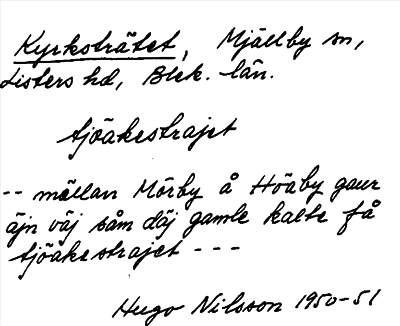 Kyrksträtet, Mjällby sn,
Listers hd, Blek. län.
tjöäkestrajet
-- mällan Mörby å Höäby gaur
äjn väj såm däj gamle kalte få
tjöäkestrajet ---
Hugo Nilsson 1950-51